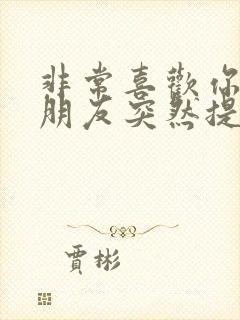 非常喜歡你
朋友突然提
賈彬